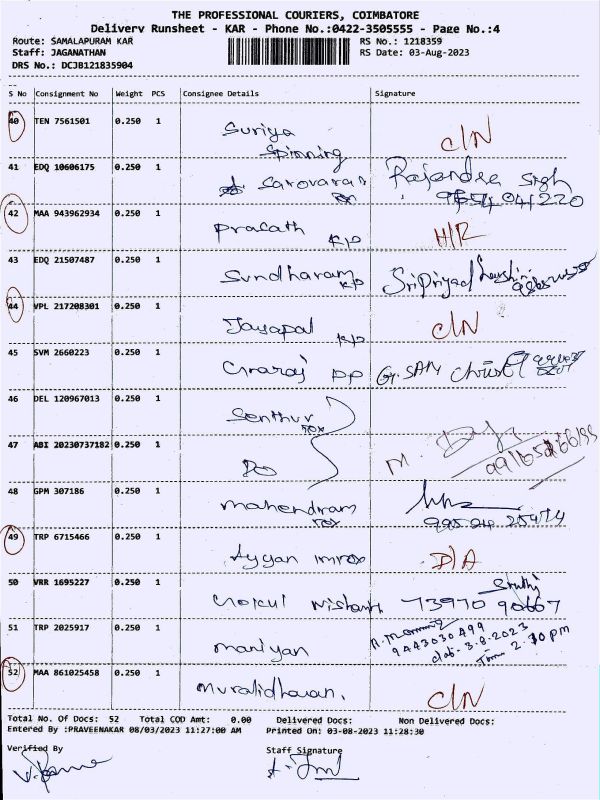 THE PROFESSIONAL COURIERS, COIMBATORE
Delivery Runsheet - KAR - Phone No.:0422-3505555 - Page No.:4
Route: SAMALAPURAM KAR RS No.: 1218359
Staff: JAGANATHAN RS Date: 03-Aug-2023
DRS No.: DCJB121835904
S No Consignment No Weight PCS Consignee Details Signature
40 TEN 7561501 0.250 1 Suriya Spinning C/N
41 EDQ 10606175 0.250 1 Sarovaram Rajendra Sigh
42 MAA 943962934 0.250 1 Prasath K/P H/R
43 EDQ 21507487 0.250 1 Sundharam K/P
44 VPL 217208301 0.250 1 Jayapal K/P C/N
45 SVM 2660223 0.250 1 PP G. SAM
46 DEL 120967013 0.250 1 Senthur
47 ABI 20230737182 0.250 1 Do M.
48 GPM 307186 0.250 1 Mahendram
49 TRP 6715466 0.250 1 Ayyan D/A
50 VRR 1695227 0.250 1 Gokul Nishanth Sruthi 73970 90667
51 TRP 2025917 0.250 1 Maniyan 9443030499
3.8.2023
2.10 pm
52 MAA 861025458 0.250 1 Muralidharan. C/N
Total No. Of Docs: 52 Total COD Amt: 0.00 Delivered Docs: Non Delivered Docs:
Entered By :PRAVEENAKAR 08/03/2023 11:27:00 AM Printed On: 03-08-2023 11:28:30
Verified By Staff Signature